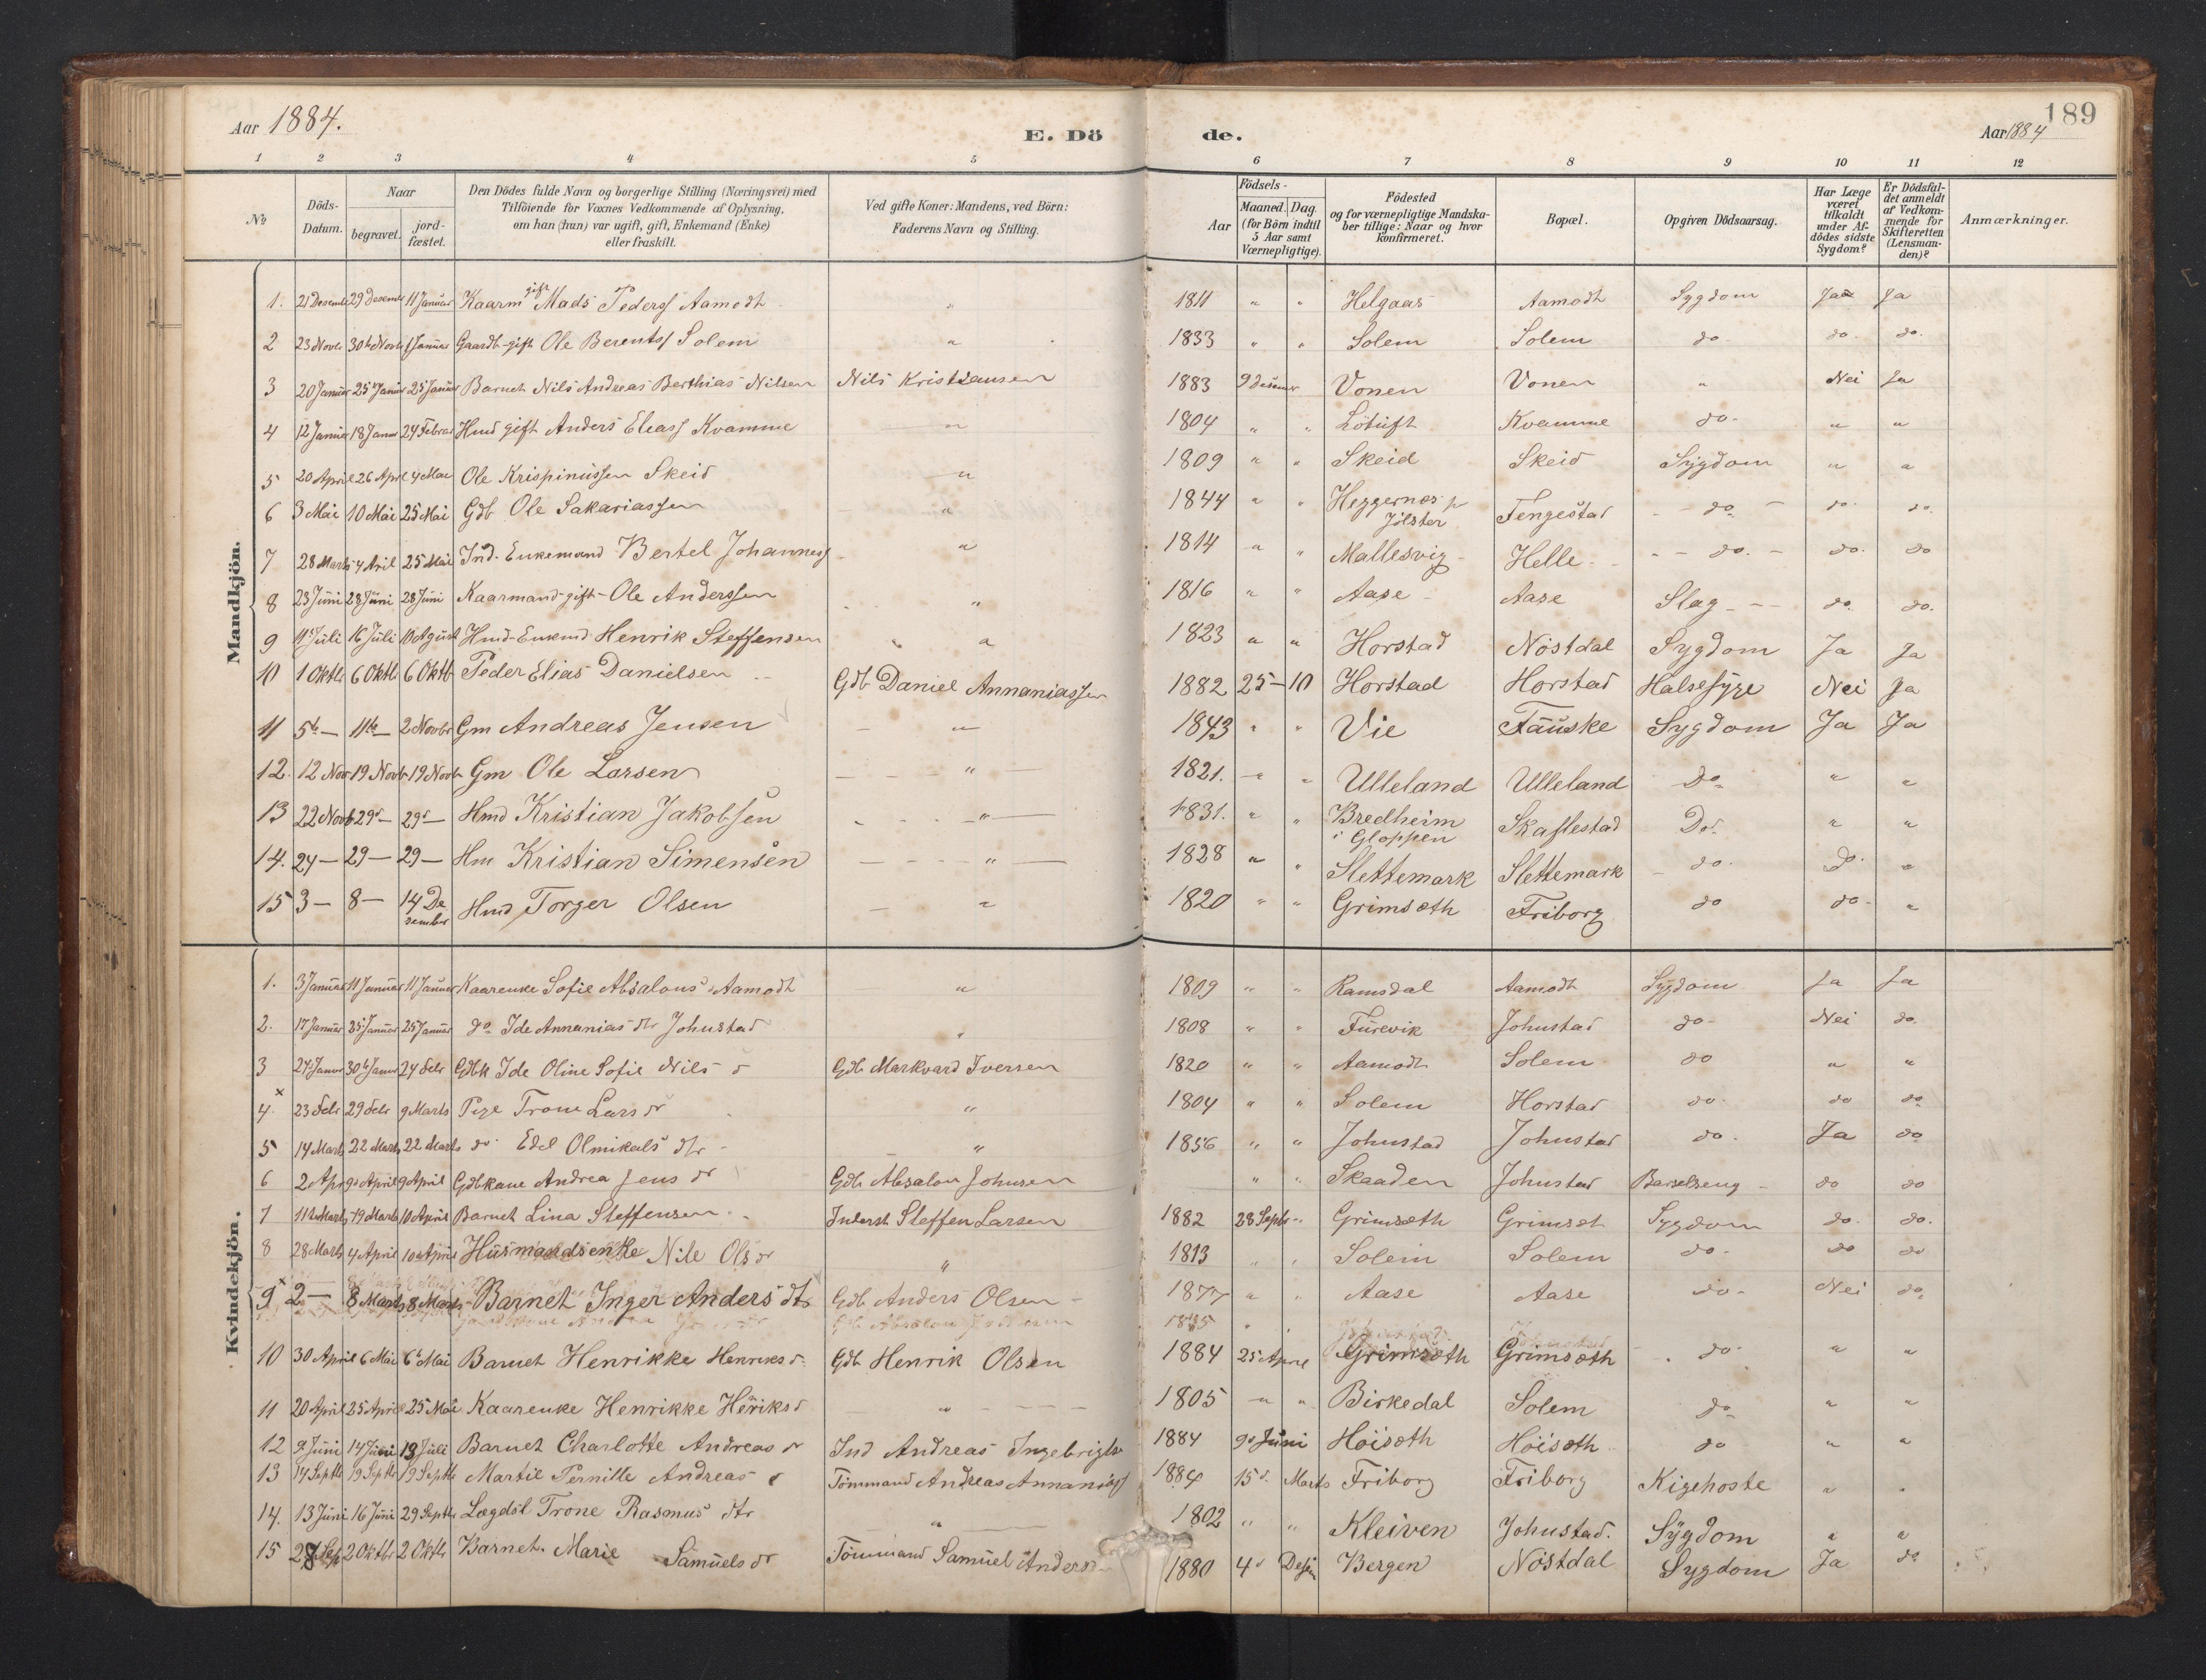 189
Aar 1884.
E. Dö de.
Aar 1884
1 2 3 4 5 6 7 8 9 10 11 12
№
Döds-Datum.
Naar
begravet.
jord-fæstet.
Den Dödes fulde Navn og borgerlige Stilling (Næringsvei) med
Tilföiende for Voxnes Vedkommende af Oplysning,
om han (hun) var ugift, gift, Enkemand (Enke)
eller fraskilt.
Ved gifte Koner: Mandens, ved Börn:
Faderens Navn og Stilling.
Födsels-
Aar
Maaned. Dag
(for Börn indtil
5 Aar samt
Værnepligtige).
Födested
og for værnepligtige Mandska-
ber tillige: Naar og hvor
konfirmeret.
Bopæl.
Opgiven Dödsaarsag.
Har Læge
været
tilkaldt
under Af-
dödes sidste
Sygdom?
Er Dödsfal-
det anmeldt
af Vedkom-
mende for
Skifteretten
(Lensman-
den)?
Anmærkninger.
Mandkjön.
1. 21 Desember 29 Desember 11 Januar Kaarm gift Mads Pederss Aamodt " 1811 " " Helgaas Aamodt Sygdom Ja Ja
2 23 Novb 30te Novb 1 Januar Gaardb gift Ole Berentss Solem " 1833 " " Solem Solem do do. do.
3 20 Januar 25 Januar 25 Januar Barnet Nils Andreas Berthias Nilsen Nils Kristiansen 1883 9 Vonen Vonen " Nei Ja
4 12 Januar 18 Januar 24 Februar Hmd gift Anders Eliass Kvamme " 1804 " " Kvamme do. " "
5 20 April 26 April 4 Mai Ole Krispinussen Skeid " 1809 " " Skeid Skeid Sygdom " "
6 3 Mai 10 Mai 25 Mai Gdb Ole Sakariassen " 1844 " " Heggernæs p Jölster Fengestad do do. do.
7 28 Marts 4 April 25 Mai Ind. Enkemand Bertel Johanness " 1814 " " Mallesvig Helle do. do. do
8 23 Juni 28 Juni 28 Juni Kaarmand gift Ole Anderssen " 1816 " " Aase Aase Slag do. do.
9 11 Juli 16 Juli 10 Agust Hmd Enkmd Henrik Steffensen " 1823 " " Horstad Nöstdal Sygdom Ja Ja
10 1 Oktb 6 Oktb 6 Oktb Peder Elias Danielsen Gdb Daniel Annaniassen 1882 25 – 10 Horstad Horstad Halsesyge Nei Ja
11 5te – 11te – 2 Novbr Gm Andreas Jensen " 1843 " " Vie Fauske Sygdom Ja Ja
12. 12 Nov 19 Novb 19 Novb Gm Ole Larsen " 1821. " " Ulleland Ulleland Do " "
13 22 Novb 29d – 29d – Hmd Kristian Jakobsen " 1831. " " Bredheim i Gloppen Skaflestad Do. " "
14. 24 – 29 – 29 – Hm Kristian Simensen " 1828 " " Slettemark Slettemark do. Do. "
15 3 – 8 – 14 Desember Hmd Torger Olsen " 1820 " " Grimsæth Friborg do do. "
Kvindekjön.
1. 3 Januar 11 Januar 11 Januar Kaarenke Sofie Absalons Aamodt " 1809 " " Ramsdal Aamodt Sygdom Ja Ja
2. 17 Januar 25 Januar 25 Januar do Ide Annanias dtr Johnstad " 1808 " " Furevik Johnstad do Nei do.
3 27 Januar 30te Januar 24 Febr Gdbk Ide Oline Sofie Nils d Gdb Markvard Iversen 1820 " " Aamodt Solem do " "
4. x 23 Febr 29 Febr 9 Marts Pige Trone Lars dr " 1804 " " Solem Horstad do. do do
5 14 Marts 22 Marts 22 Marts do. Edel Olmikals dtr " 1856 " " Johnstad Johnstad do. Ja do
6 2 Apr 9d April 9 April Gdbkone Andrea Jens dr Gdb Absalon Johnsen " " Skaaden Johnstad Barselseng do do
7 11te Marts 19 Marts 10 April Barnet Lina Steffensen Inderst Steffen Larsen 1882 28 Septb " Grimsæth Grimset Sygdom do. do.
8 28 Marts 4 April 10 April Husmandsenke Nile Ols dr " 1813 " " Solem Solem do. do do
9 x 2 – 8 Marts 8 Marts Barnet Inger Anders dtr Gdb Anders Olsen 1877 " " Aase Aase do. Nei do.
10 30 April 6 Mai 6te Mai Barnet Henrikke Henriks d. Gdb Henrik Olsen 1884 25 April Grimsæth Grimsæth do. " "
11 20 April 25 April 25 Mai Kaarenke Henrikke Heriks d " 1805 " " Birkedal Solem do " "
12 9 Juni 14 Juni 13 Juli Barnet Charlotte Andreas dr Ind Andreas Ingebrigts 1884 9d Juni Höisæth Höisæth do " "
13 14 Septb 19 Septb 19 Septb Martie Pernille Andreas d Tömmand Andreas Annaniass 1884 15d. Marts Friborg Friborg Kigehoste " "
14. 13 Juni 16 Juni 29 Septb Lægdsl Trone Rasmus dtr " 1802 " " Kleiven Johnstad. Sygdom " "
15 28 Sep 2 Oktbr 2 Oktb Barnet. Marie Samuels dr Tömmand Samuel Anders 1880 4d Desem Bergen Nöstdal Sygdom Ja do